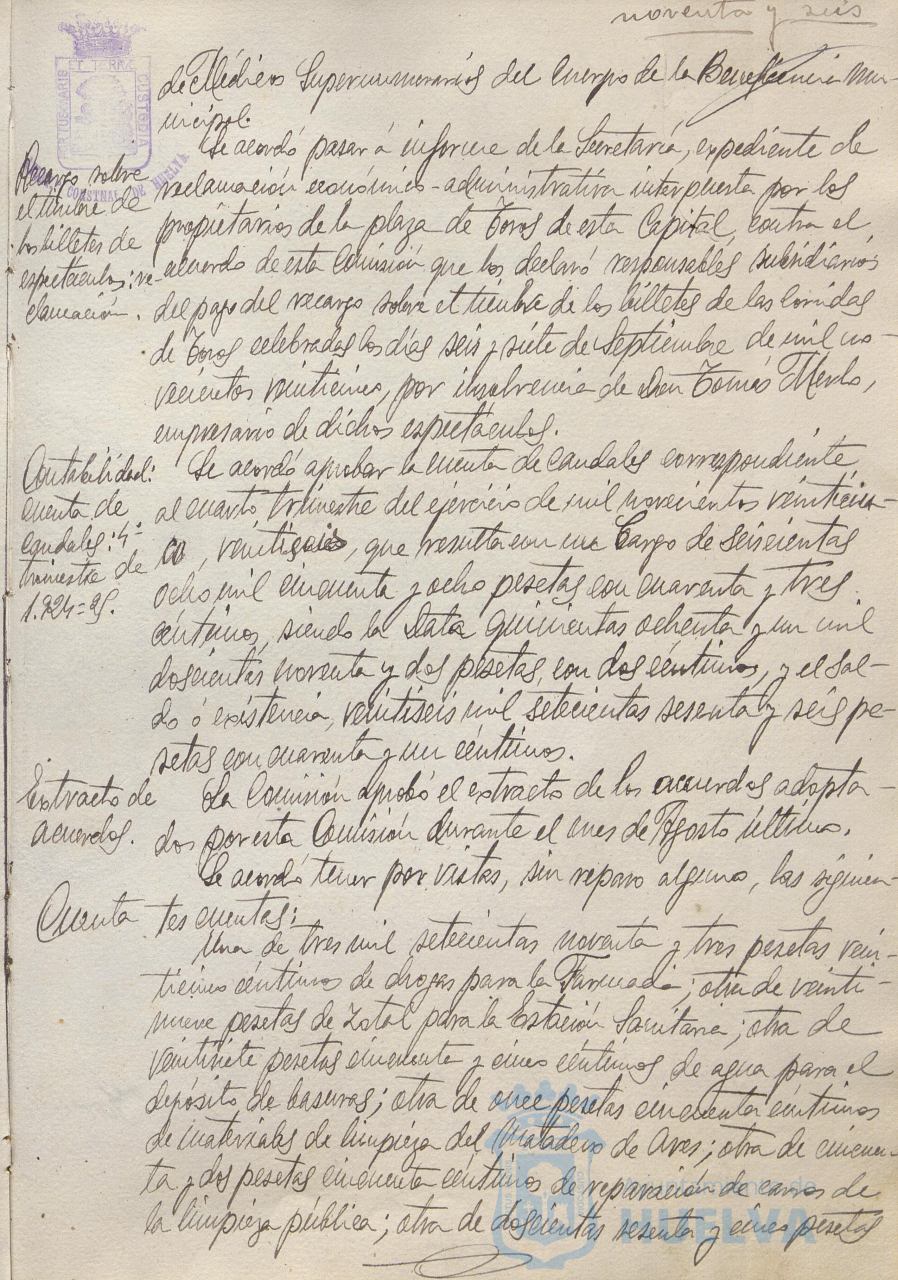 noventa y seis
de Médicos Supernumerarios del Cuerpo de la Beneficencia Mu-
nicipal.
Recargo sobre
el timbre de
los billetes de
espectáculos; re-
clamación.
Se acordó pasar á informe de la Secretaría, expediente de
reclamación económico-administrativa interpuesta por los
propietarios de la plaza de Toros de esta Capital, contra el
acuerdo de esta Comisión que los declaró responsables subsidiarios
del pago del recargo sobre el timbre de los billetes de las corridas
de Toros celebradas los días seis y siete de Septiembre de mil no-
vecientos veinticinco, por insolvencia de Don Tomás Merlo,
empresario de dichos espectáculos.
Contabilidad:
cuenta de
caudales: 4º
trimestre de
1.924=25.
Se acordó aprobar la cuenta de caudales correspondiente
al cuarto trimestre del ejercicio de mil novecientos veinticin-
co, veintiseis, que resulta con un Cargo de seiscientas
ocho mil cincuenta y ocho pesetas con cuarenta y tres
céntimos, siendo la Data quinientas ochenta y un mil
doscientas noventa y dos pesetas, con dos céntimos, y el sal-
do ó existencia, veintiseis mil setecientas sesenta y seis pe-
setas con cuarenta y un céntimos.
Extracto de
acuerdos.
La Comisión aprobó el extracto de los acuerdos adopta-
dos por esta Comisión durante el mes de Agosto último.
Se acordó tener por vistas, sin reparo alguno, las siguien-
Cuenta
tes cuentas:
Una de tres mil setecientas noventa y tres pesetas vein-
ticinco céntimos de drogas para la Farmacia; otra de veinti-
nueve pesetas de Zotal para la Estación Sanitaria; otra de
veintisiete pesetas cincuenta y cinco céntimos de agua para el
depósito de basuras; otra de once pesetas cincuenta céntimos
de materiales de limpieza del Matadero de Aves; otra de cincuen-
ta y dos pesetas cincuenta céntimos de reparación de carros de
la limpieza pública; otra de doscientas sesenta y cinco pesetas
PORTUS MARIS ET TERRÆ CUSTODIA
CONSTNAL DE HUELVA
Ayuntamiento de
HUELVA